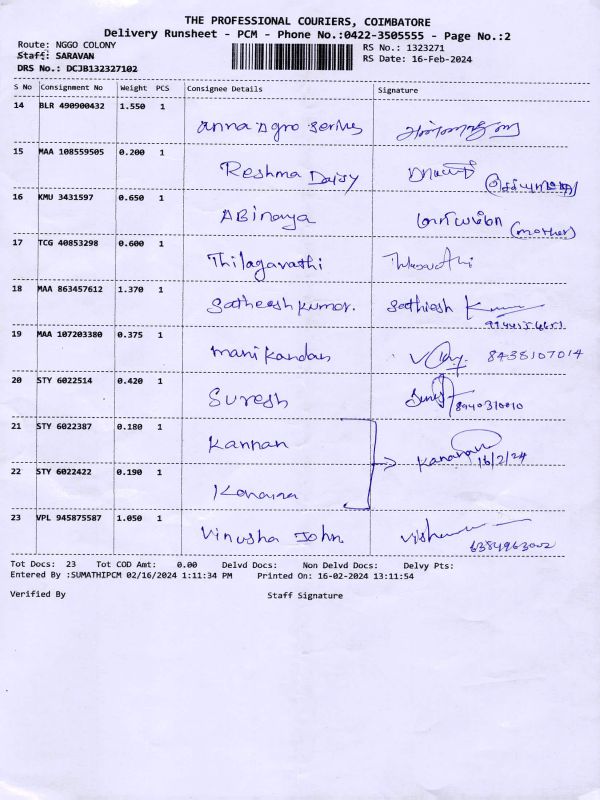 THE PROFESSIONAL COURIERS, COIMBATORE
Delivery Runsheet - PCM - Phone No.:0422-3505555 - Page No.:2
Route: NGGO COLONY
RS No.: 1323271
Staff: SARAVAN
RS Date: 16-Feb-2024
DRS No.: DCJB132327102
S No Consignment No Weight PCS Consignee Details Signature
14 BLR 490900432 1.550 1
anna agro serives
15 MAA 108559505 0.200 1
Reshma Daisy
16 KMU 3431597 0.650 1
ABinaya (mother)
17 TCG 40853298 0.600 1
Thilagavathi
18 MAA 863457612 1.370 1
Satheeshkumar. Sathiesh
19 MAA 107203380 0.375 1
manikandan 8438107014
20 STY 6022514 0.420 1
Suresh
21 STY 6022387 0.180 1
Kannan
16/2/24
22 STY 6022422 0.190 1
23 VPL 945875587 1.050 1
Vinusha John
Tot Docs: 23 Tot COD Amt: 0.00 Delvd Docs: Non Delvd Docs: Delvy Pts:
Entered By :SUMATHIPCM 02/16/2024 1:11:34 PM Printed On: 16-02-2024 13:11:54
Verified By Staff Signature